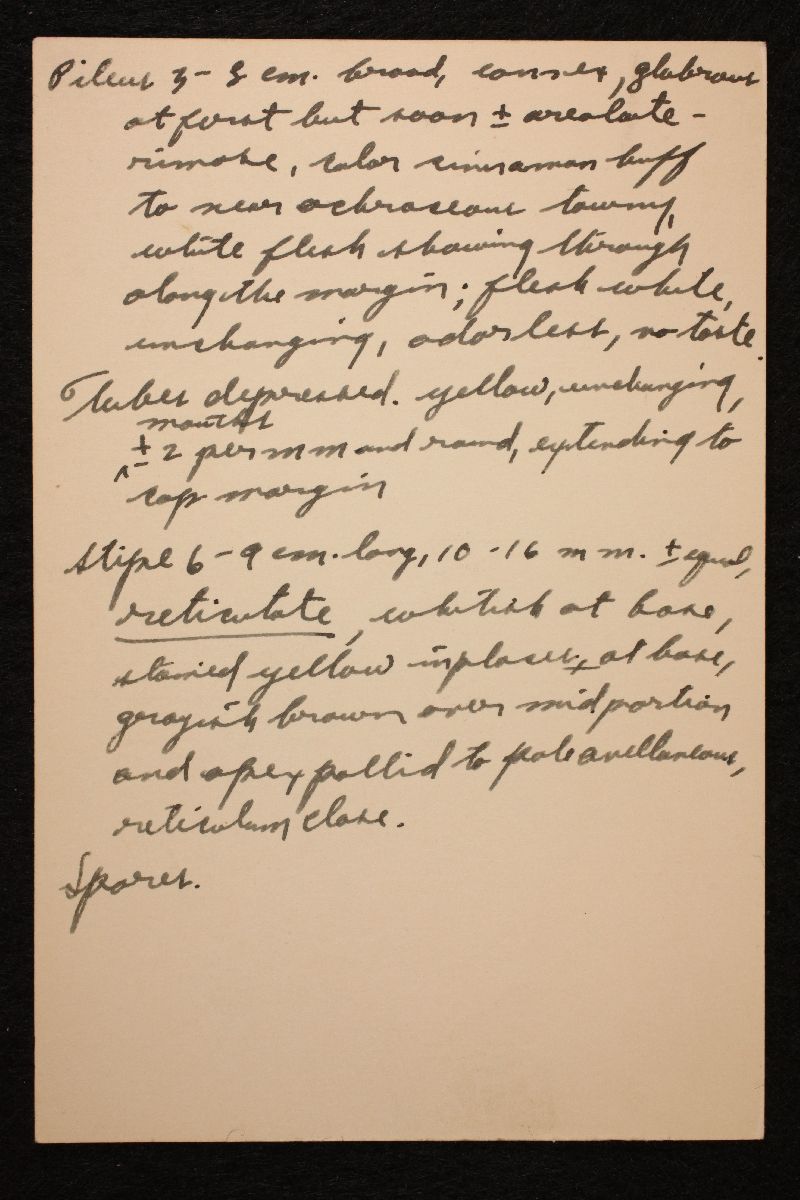 Pileus 3-8 cm. broad, convex, glabrous
at first but soon ± areolate-
rimose, color cinnamon buff
to near ochraceous tawny,
white flesh showing through
along the margin; flesh white,
unchanging, odorless, no taste.
Tubes depressed. yellow, unchanging,
mouths
± 2 per mm and round, extending to
cap margin
Stipe 6-9 cm. long, 10-16 mm. ± equal,
reticulate, whitish at base,
stained yellow in places ± at base,
grayish brown over midportion
and apex pallid to pale avellaneous,
reticulum close.
Spores.